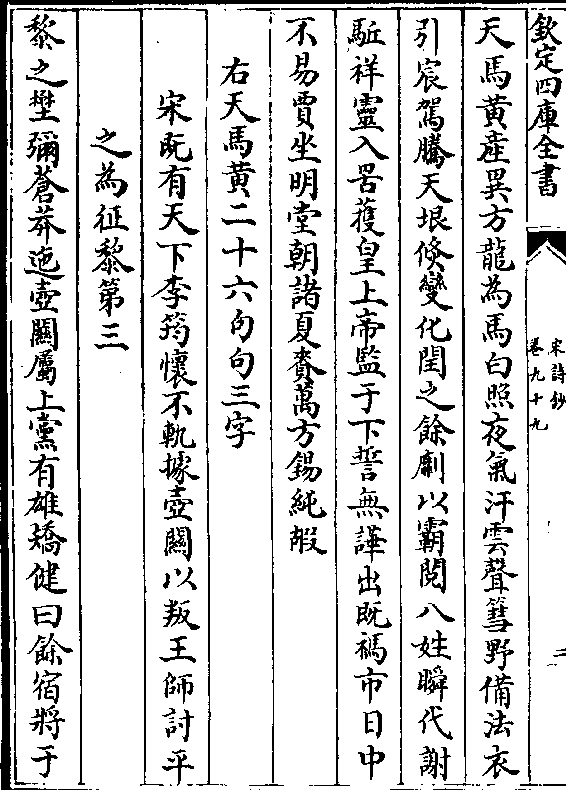 欽定四庫全書
宋詩鈔
卷九十九
二
天馬黃產異方龍為馬白照夜氣汗雲聲篲野備法衣
引宸駕騰天垠倐變化閏之餘劘以霸閱八姓瞬代謝
駈祥靈入罟擭皇上帝監于下誓無譁出既禡市日中
不易賈坐明堂朝諸夏賚萬方錫純嘏
右天馬黃二十六句句三字
宋既有天下李筠懷不軌據壺闗以叛王師討平
之為征黎第三
黎之埜彌蒼莽迤壺闗屬上黨有雄矯健曰餘宿將于